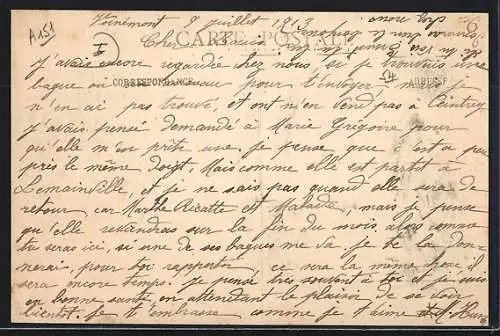 A151
Voinémont 8 juillet 1913
CARTE POSTALE
Cher
J'avais encore regardée chez nous si je trouvais une
CORRESPONDANCE
ADRESSE
bague ou pour t'envoyer, mais je
n'en ai pas trouvé, et ont n'en vend pas à Ceintrey
J'avais pensé demandé à Marie Grégoire pour
qu'elle m'en prête une. je pense que c'est à peu
près le même doigt, Mais comme elle est partit à
Lemainville, et je ne sais pas quand elle sera de
retour, car Marthe Ricatte est Malade, mais je pense
qu'elle reviendras sur la fin du mois, alors comme
tu seras ici, si une de ses bagues me va je te la don-
nerai, pour toi rapporter ce sera la même chose il
sera encore temps. je pense très souvent à toi et je suis
en bonne santé en attendant le plaisir de se voir
bientôt. je t'embrasse comme je t'aime